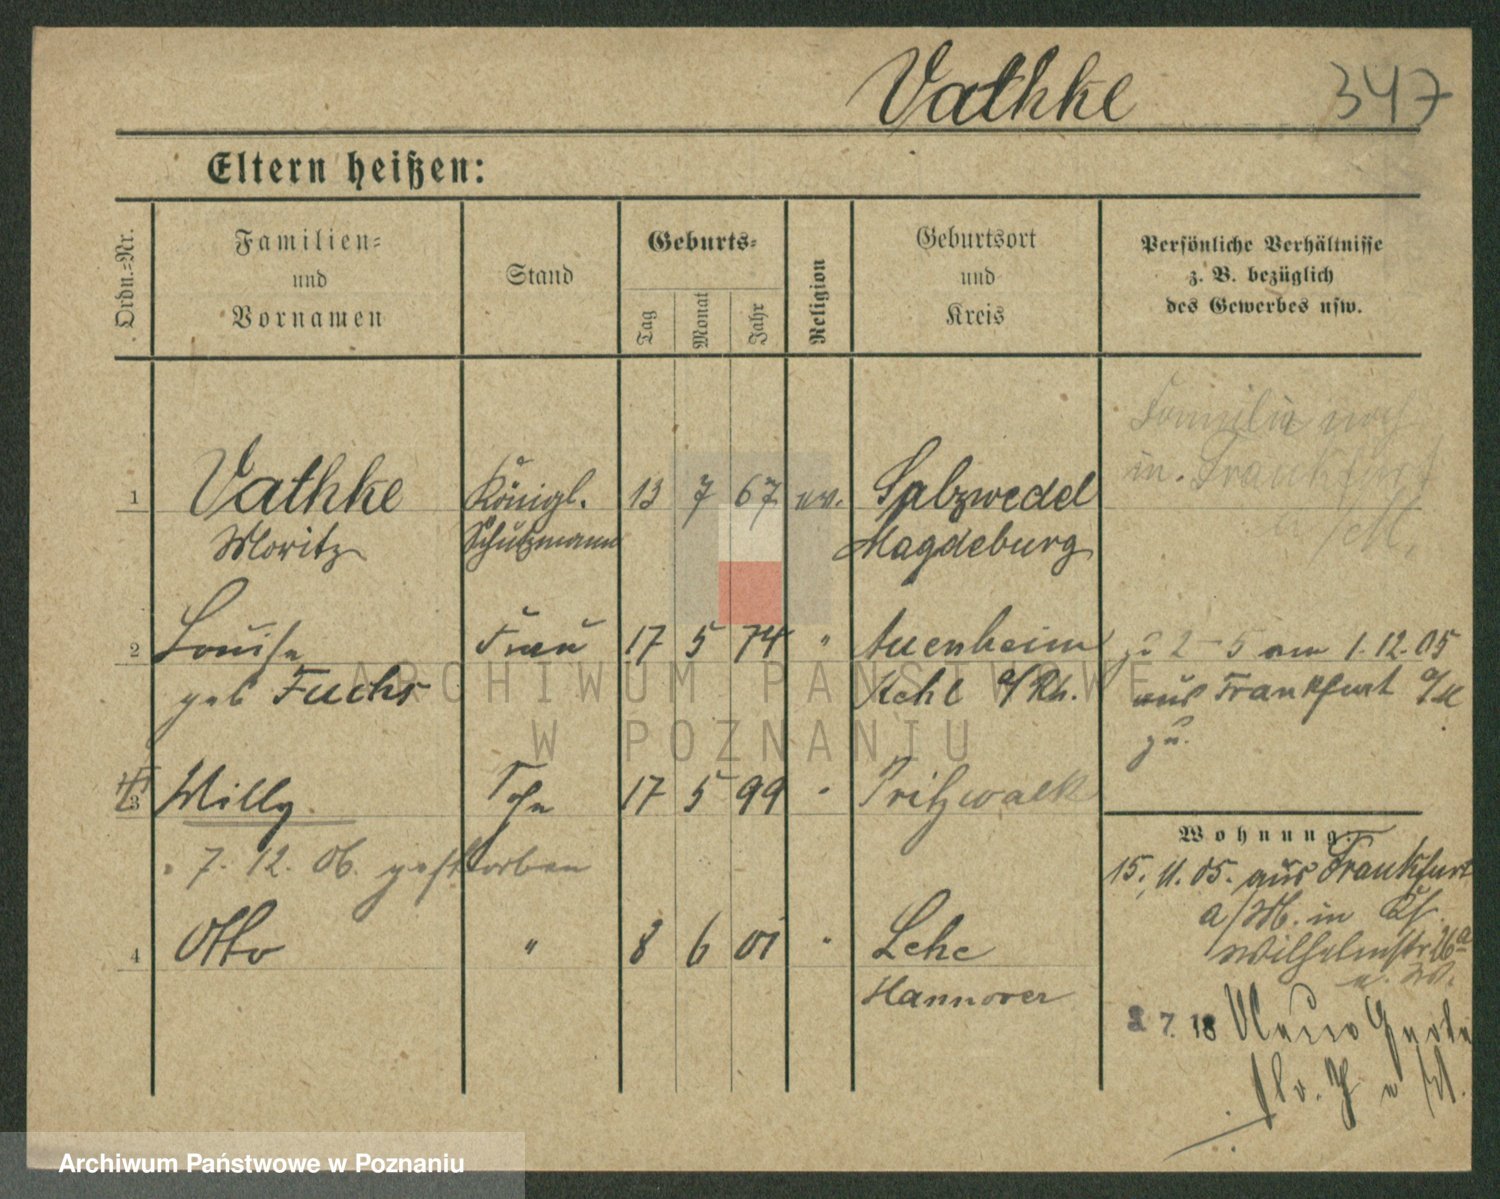 Vathke 347
Eltern heißen:
Ordn.=Nr.
Familien=
und
Vornamen
Stand
Geburts=
Tag
Monat
Jahr
Religion
Geburtsort
und
Kreis
Persönliche Verhältnisse
z. B. bezüglich
des Gewerbes usw.
Familie noch
in Frankfurt
a/M.
1 Vathke Königl. 13 7 67 ev. Salzwedel
Moritz Schutzmann Magdeburg
2 Louise Frau 17 5 74 " Auenheim
geb Fuchs Kehl a/Rh.
zu 2-5 am 1.12.05
aus Frankfurt a/M
zu.
3 Willy Sohn 17 5 99 " Pritzwalk
7. 12. 06. gestorben
4 Otto " 8 6 01 " Lehe
Hannover
Wohnung:
15. 11. 05. aus Frankfurt
a/M. in
Wilhelmstr 26a
2 7. 18
ARCHIWUM PAŃSTWOWE
W POZNANIU
Archiwum Państwowe w Poznaniu